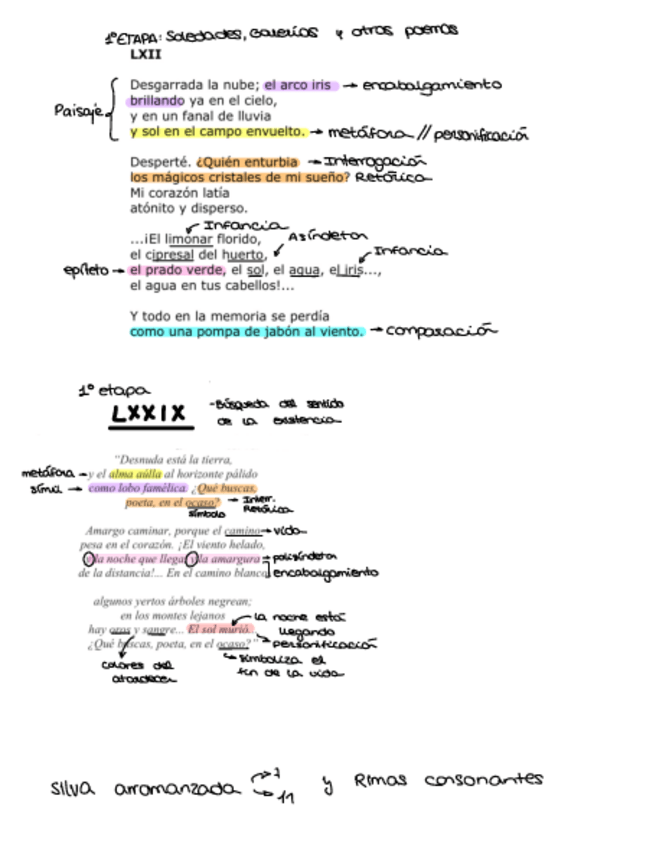 1ºETAPA: Soledades, Galerías y otros poemas
LXII
Desgarrada la nube; el arco iris → encabalgamiento
brillando ya en el cielo,
Paisaje
y en un fanal de lluvia
y sol en el campo envuelto. → metáfora // personificación
Desperté. ¿Quién enturbia → Interrogación
los mágicos cristales de mi sueño? Retórica
Mi corazón latía
atónito y disperso.
Infancia
...¡El limonar florido, Asíndeton
el cipresal del huerto, Infancia
epíteto → el prado verde, el sol, el agua, el iris...,
el agua en tus cabellos!...
Y todo en la memoria se perdía
como una pompa de jabón al viento. → comparación
1º etapa
LXXIX
-Búsqueda del sentido
de la existencia
"Desnuda está la tierra,
metáfora → y el alma aúlla al horizonte pálido
símil → como lobo famélica ¿Qué buscas,
poeta, en el ocaso? → Interr.
Retórica
símbolo
Amargo caminar, porque el camino → vida
pesa en el corazón. ¡El viento helado,
y la noche que llega, y la amargura = polisíndeton
de la distancia!... En el camino blanco encabalgamiento
algunos yertos árboles negrean;
en los montes lejanos
la noche está
llegando
hay oros y sangre... El sol murió.
personificación
¿Qué buscas, poeta, en el ocaso?"
simboliza el
fin de la vida
colores del
atardecer
Silva arromanzada → 7
→ 11
y Rimas consonantes